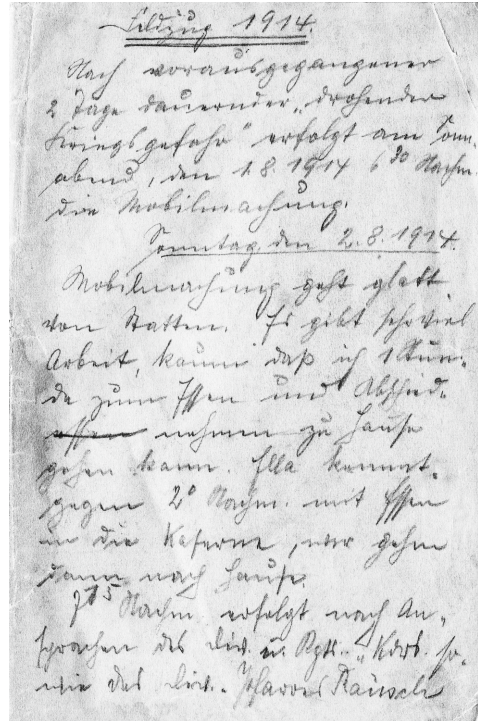 Feldzug 1914.
Nach vorausgegangener
2 Tage dauernder „drohender
Kriegsgefahr“ erfolgt am Sonn-
abend, den 1.8.1914 6³⁰ Nachm.
die Mobilmachung.
Sonntag, den 2.8.1914.
Mobilmachung geht glatt
von Statten. Es gibt sehr viel
Arbeit, kaum daß ich 1 Stun-
de zum Essen und Abschied-
essen nehmen zu Hause
gehen kann. Ella kommt
gegen 2⁰ Nachm. mit Essen
in die Kaserne, wir gehen
dann nach Hause.
7¹⁵ Nachm. erfolgt nach An-
sprachen des Div. u. Rgts. - Kdrs. so-
wie des Div. - Pfarrers Rausch